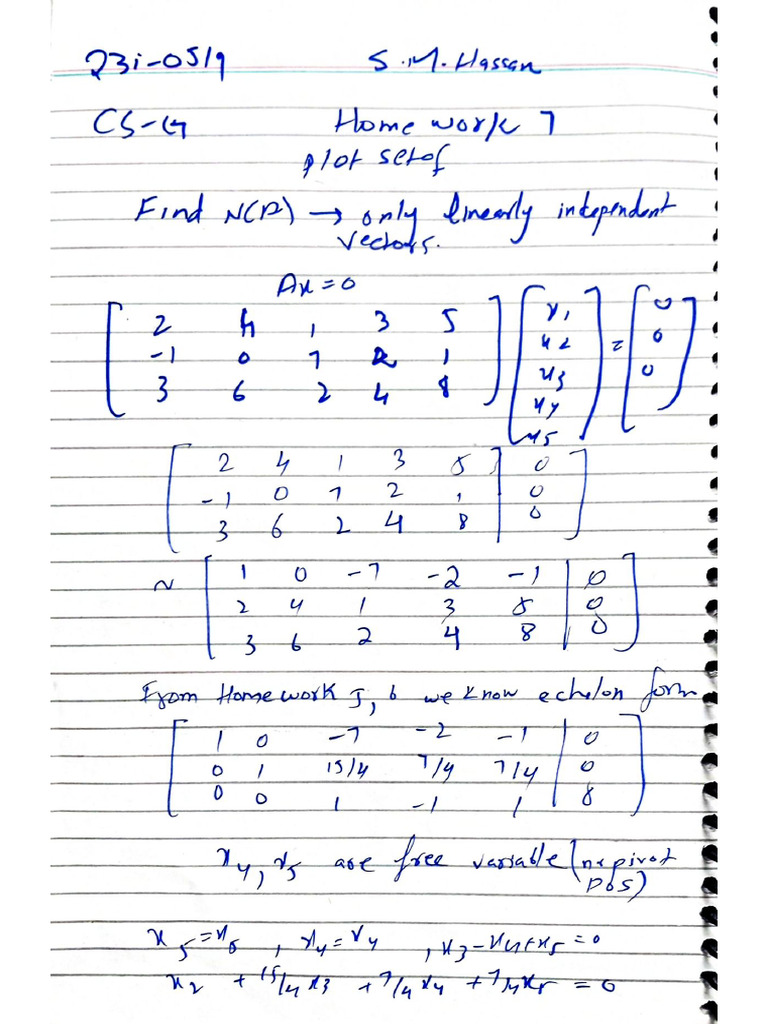 23i-0519 S.M.Hassan
CS-G Home work 7
plot set of
Find N(A) → only linearly independent
vectors.
Ax=0
[ 2 4 1 3 5 ] [ x1 ] = [ 0 ]
[ -1 0 7 2 1 ] [ x2 ] [ 0 ]
[ 3 6 2 4 8 ] [ x3 ] [ 0 ]
x4
x5
[ 2 4 1 3 5 | 0 ]
[ -1 0 7 2 1 | 0 ]
[ 3 6 2 4 8 | 0 ]
~ [ 1 0 -7 -2 -1 | 0 ]
[ 2 4 1 3 5 | 0 ]
[ 3 6 2 4 8 | 0 ]
From Home work 5, 6 we know echelon form
[ 1 0 -7 -2 -1 | 0 ]
[ 0 1 15/4 7/4 7/4 | 0 ]
[ 0 0 1 -1 1 | 0 ]
x4, x5 are free variable (no pivot
pos)
x5 = x5 , x4 = x4 , x3 - x4 + x5 = 0
x2 + 15/4 x3 + 7/4 x4 + 7/4 x5 = 0